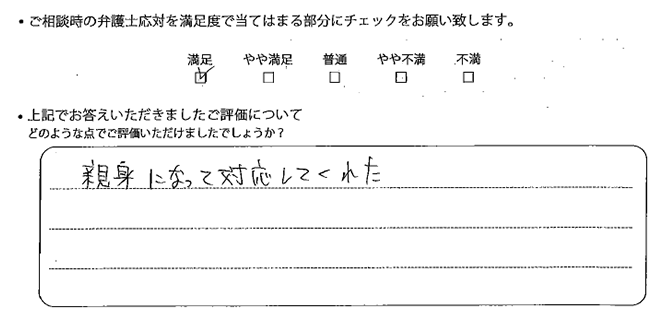 ・ご相談時の弁護士応対を満足度で当てはまる部分にチェックをお願い致します。
満足 やや満足 普通 やや不満 不満
☑ □ □ □ □
・上記でお答えいただきましたご評価について
どのような点でご評価いただけましたでしょうか？
親身になって対応してくれた